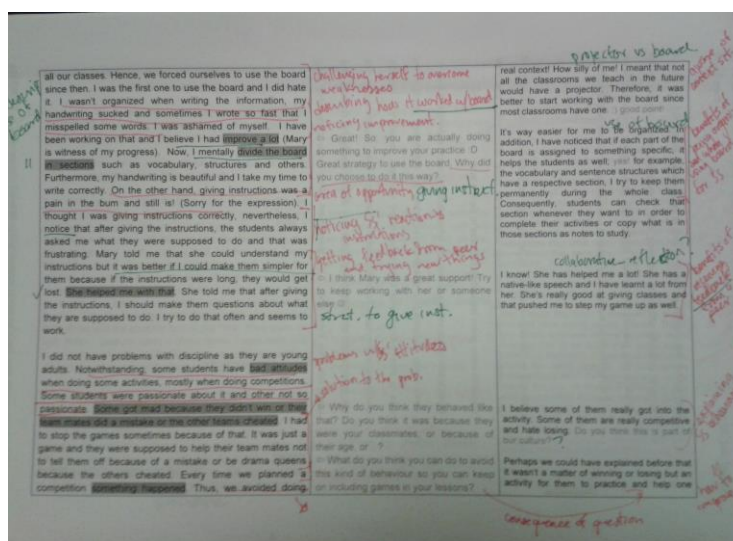 all our classes. Hence, we forced ourselves to use the board
since then. I was the first one to use the board and I did hate
it. I wasn't organized when writing the information, my
handwriting sucked and sometimes I wrote so fast that I
misspelled some words. I was ashamed of myself. I have
been working on that and I believe I had improve a lot (Mary
is witness of my progress). Now, I mentally divide the board
in sections such as vocabulary, structures and others.
Furthermore, my handwriting is beautiful and I take my time to
write correctly. On the other hand, giving instructions was a
pain in the bum and still is! (Sorry for the expression). I
thought I was giving instructions correctly, nevertheless, I
notice that after giving the instructions, the students always
asked me what they were supposed to do and that was
frustrating. Mary told me that she could understand my
instructions but it was better if I could make them simpler for
them because if the instructions were long, they would get
lost. She helped me with that. She told me that after giving
the instructions, I should make them questions about what
they are supposed to do. I try to do that often and seems to
work.
I did not have problems with discipline as they are young
adults. Notwithstanding, some students have bad attitudes
when doing some activities, mostly when doing competitions.
Some students were passionate about it and other not so
passionate. Some got mad because they didn't win or their
team mates did a mistake or the other teams cheated. I had
to stop the games sometimes because of that. It was just a
game and they were supposed to help their team mates not
to tell them off because of a mistake or be drama queens
because the others cheated. Every time we planned a
competition something happened. Thus, we avoided doing
challenging herself to overcome
weaknesses
describing how it worked w/ board
noticing improvement.
Great! So you are actually doing
something to improve your practice :D
Great strategy to use the board. Why did
you choose to do it this way?
area of opportunity, giving instruct.
noticing Ss' reactions
instructions
getting feedback from peer
and trying new things
I think Mary was a great support! Try
to keep working with her or someone
else
strat. to give inst.
problems w/ Ss' attitudes
solution to the prob.
Why do you think they behaved like
that? Do you think it was because they
were your classmates, or because of
their age, or ?
What do you think you can do to avoid
this kind of behaviour so you can keep
on including games in your lessons?
projector vs board
real context! How silly of me! I meant that not
all the classrooms we teach in the future
would have a projector. Therefore, it was
better to start working with the board since
most classrooms have one. good point
use of board
It's way easier for me to be organized. In
addition, I have noticed that if each part of the
board is assigned to something specific, it
helps the students as well, for example,
the vocabulary and sentence structures which
have a respective section, I try to keep them
permanently during the whole class.
Consequently, students can check that
section whenever they want to in order to
complete their activities or copy what is in
those sections as notes to study.
collaborative reflection?
I know! She has helped me a lot! She has a
native-like speech and I have learnt a lot from
her. She's really good at giving classes and
that pushed me to step my game up as well.
I believe some of them really got into the
activity. Some of them are really competitive
and hate losing. Do you think this is part of
our culture?
Perhaps we could have explained before that
it wasn't a matter of winning or losing but an
activity for them to practice and help one
consequence of question